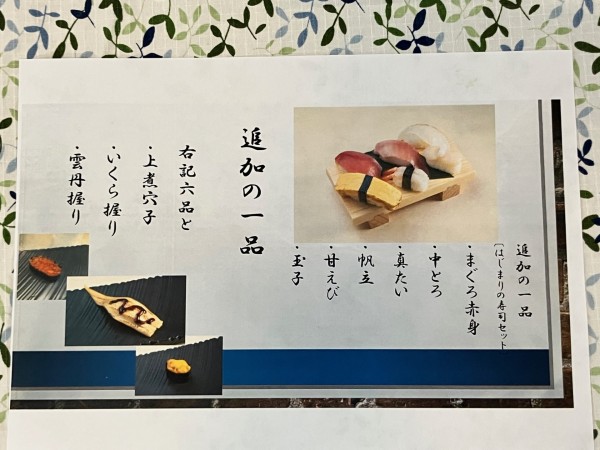 追加の一品
〔はじまりの寿司セット
・まぐろ赤身
・中とろ
・真たい
・帆立
・甘えび
・玉子
追加の一品
右記六品と
・上煮穴子
・いくら握り
・雲丹握り